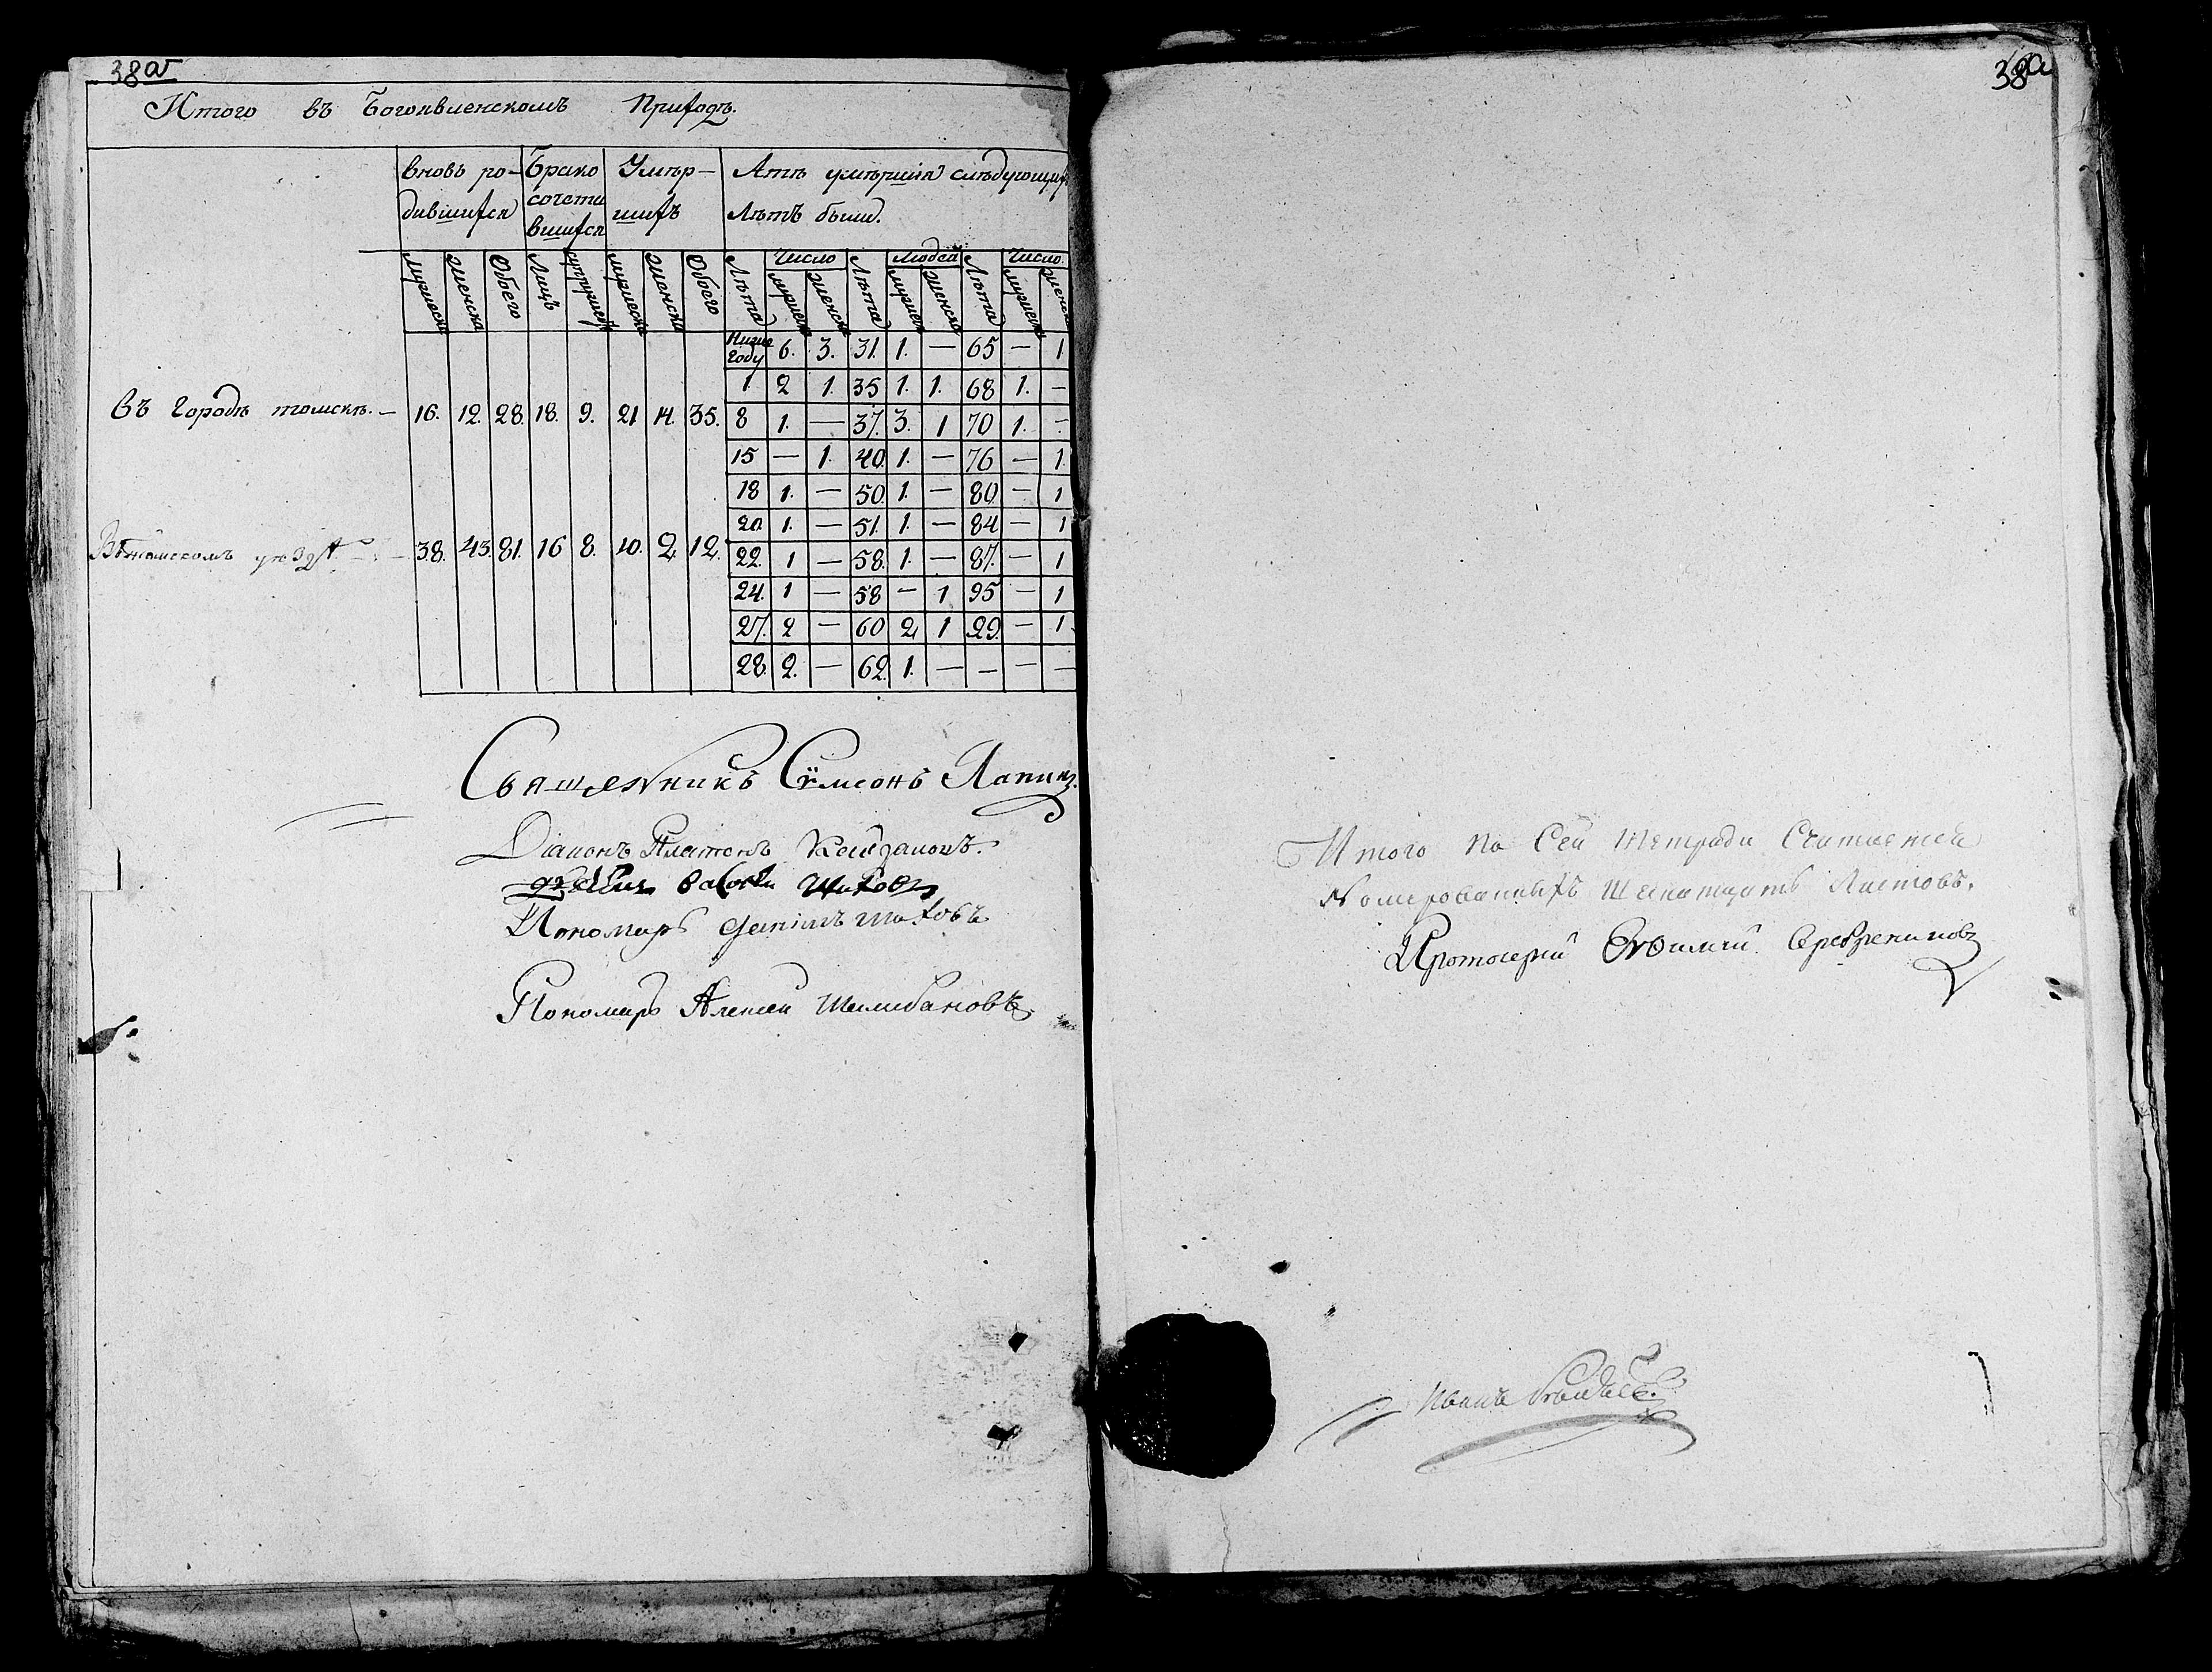 38а
Итого въ Богоявленскомъ Приходѣ.
вновь ро- Брако Умѣр- Лѣтъ умѣршия слѣдующихъ
дившихся сочета шихъ Лѣтъ были.
вшихся
Число Людей Число.
мужеска женска Обоего Лицъ супружествъ мужеска женска Обоего Лѣта мужеска женска Лѣта мужеска женска Лѣта мужеска женска
Ниже году 6. 3. 31. 1. — 65 — 1.
1. 2 1. 35 1. 1. 68 1. —
въ Городѣ томскѣ. — 16. 12. 28. 18. 9. 21 14. 35. 8 1. — 37. 3. 1 70 1. —
15 — 1. 40. 1. — 76 — 1.
18 1. — 50. 1. — 80. — 1
20. 1. — 51. 1. — 84 — 1
Втомскомъ уѣздѣ — 38. 43. 81. 16 8. 10. 2 12. 22. 1 — 58. 1. — 87. — 1
24. 1 — 58 — 1 95 — 1
27. 2 — 60 2 1 29. — 1.
28. 2. — 62. 1. — — — —
Священникъ Сѵмеонъ Лапинъ.
Диаконъ Платонъ Кайдаловъ.
Шиховъ
Пономарь Данiилъ Шиховъ
Пономарь Алексей Шелибановъ
38а
Итого На Сей Тетради Считается
Номерованныхъ Шеснатцать Листовъ.
Протоиерей Евфимий Серебрениковъ
Иванъ